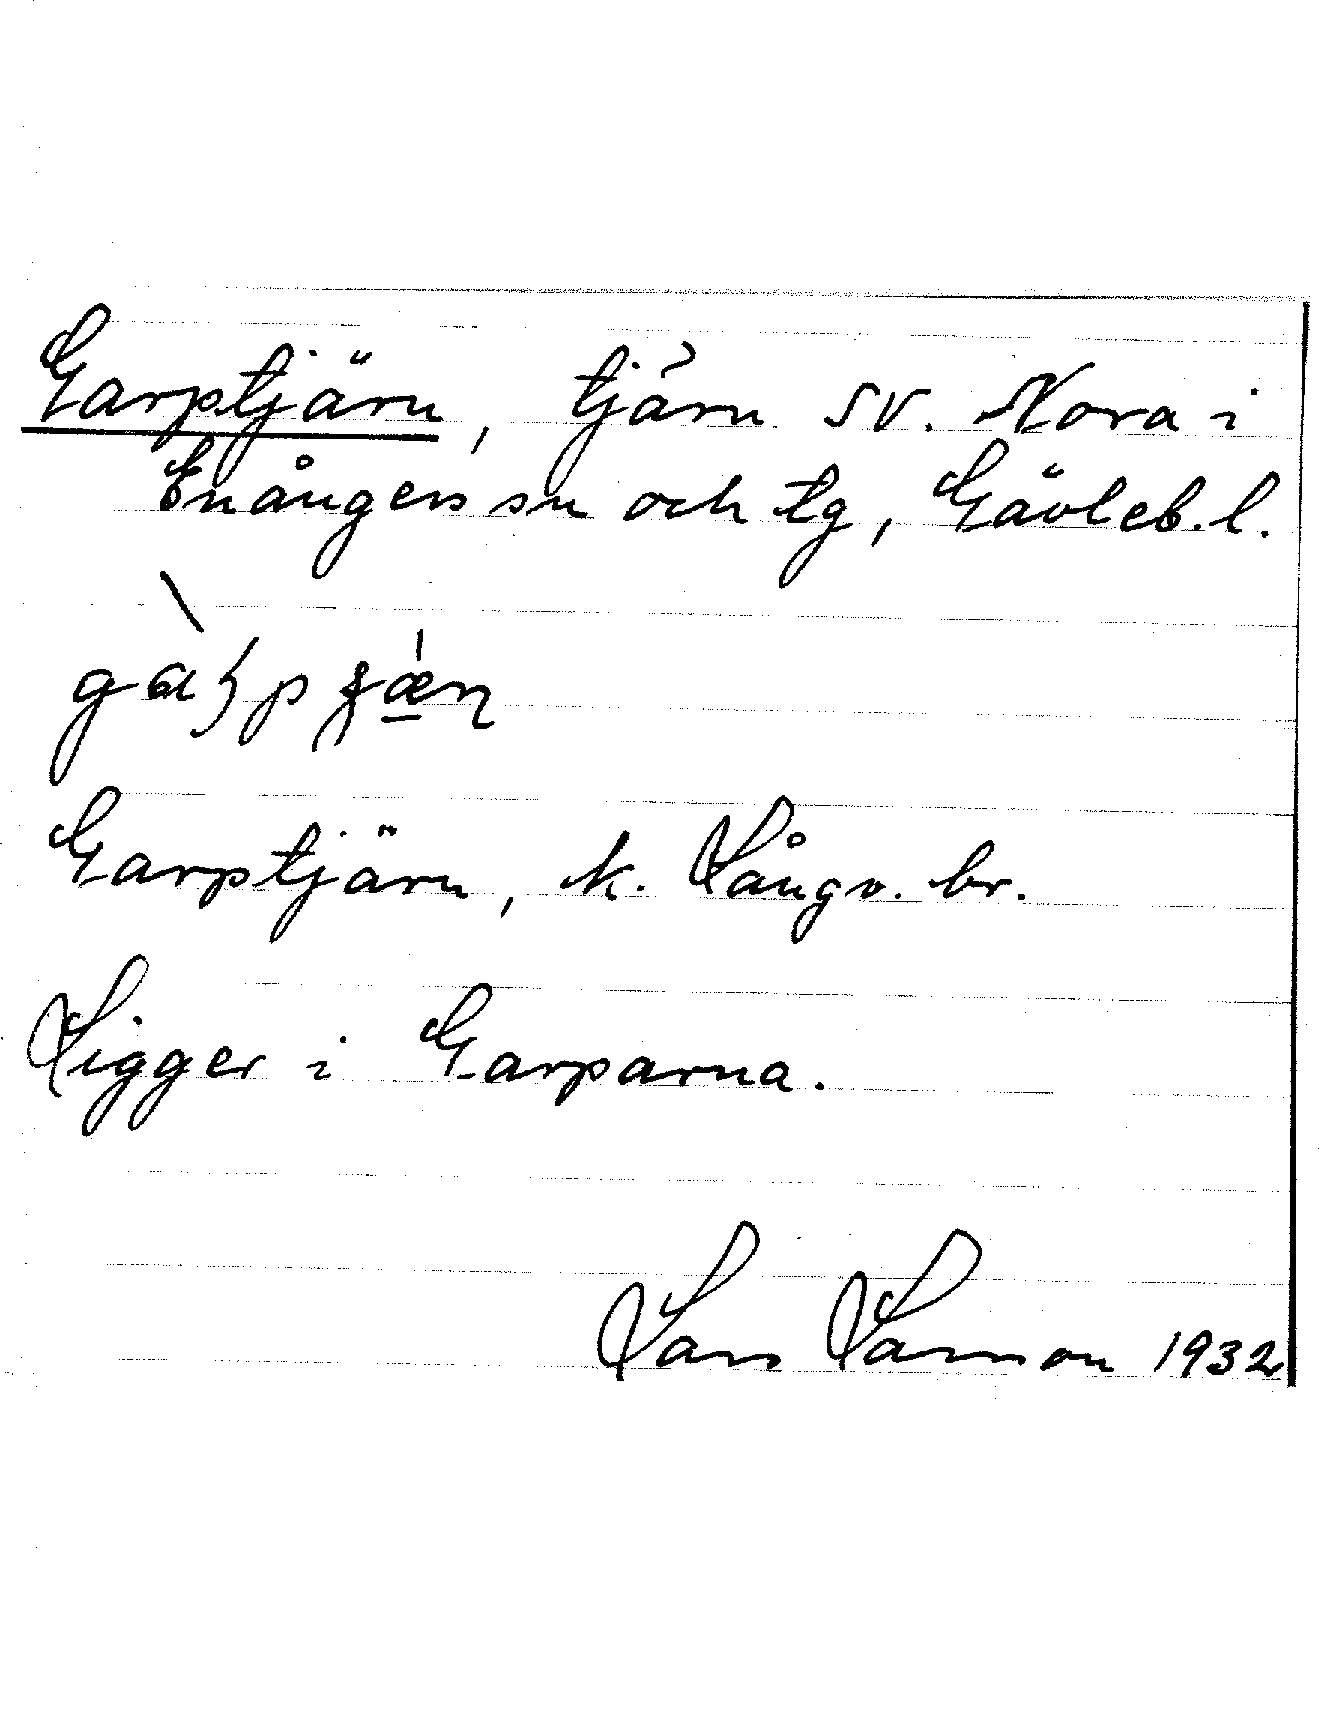 Garptjärn, tjärn SV. Nora i
Enångers sn och tg, Gävleb.l.
Garptjärn, k. Långv. br.
Ligger i Garparna.
Lars Larsson 1932